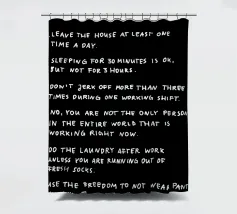 LEAVE THE HOUSE AT LEAST ONE
TIME A DAY.
SLEEPING FOR 30 MINUTES IS OK,
BUT NOT FOR 3 HOURS.
DON'T JERK OFF MORE THAN THREE
TIMES DURING ONE WORKING SHIFT.
NO, YOU ARE NOT THE ONLY PERSON
IN THE ENTIRE WORLD THAT IS
WORKING RIGHT NOW.
DO THE LAUNDRY AFTER WORK
UNLESS YOU ARE RUNNING OUT OF
FRESH SOCKS.
USE THE FREEDOM TO NOT WEAR PANT